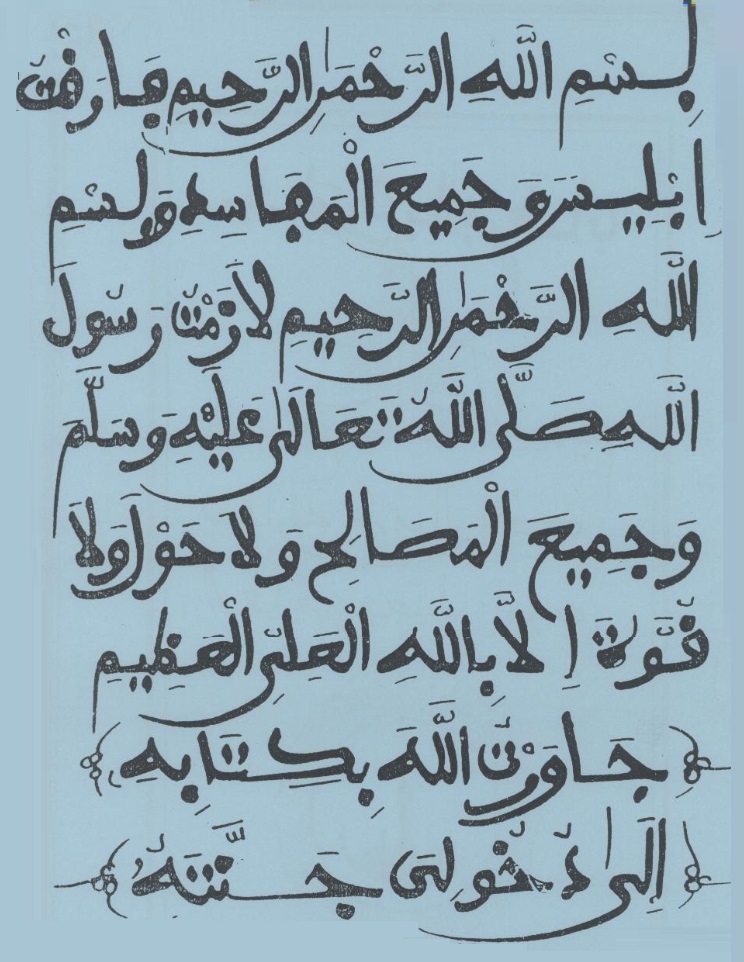 بِسْمِ اللَّهِ الرَّحْمَٰنِ الرَّحِيمِ فَارَقْتُ
إِبْلِيسَ وَجَمِيعَ الْمَفَاسِدِ وَبِسْمِ
اللَّهِ الرَّحْمَٰنِ الرَّحِيمِ لَازَمْتُ رَسُولَ
اللَّهِ صَلَّى اللَّهُ تَعَالَىٰ عَلَيْهِ وَسَلَّمَ
وَجَمِيعَ الْمَصَالِحِ وَلَا حَوْلَ وَلَا
قُوَّةَ إِلَّا بِاللَّهِ الْعَلِيِّ الْعَظِيمِ
جَاوَرْتُ اللَّهَ بِكِتَابِهِ
إِلَىٰ دُخُولِي جَنَّتَهُ